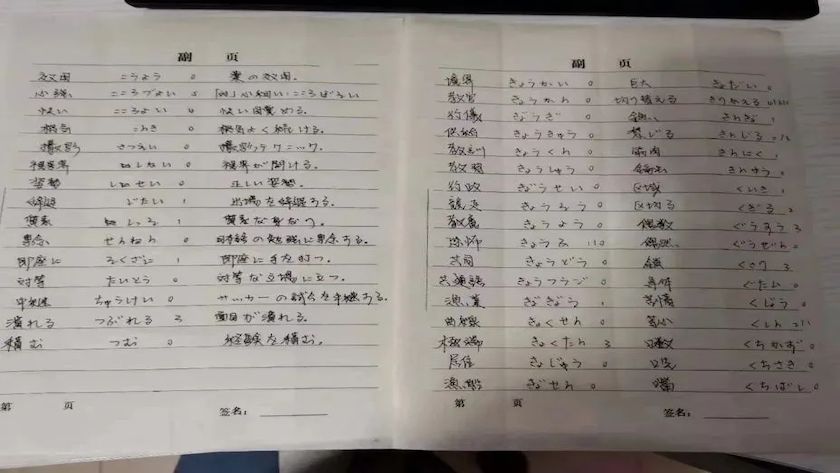 副 页
効用 こうよう 0 薬の効用。
心強い こころづよい 5
快い こころよい 0 快い
根気 こんき 0 根気よく続ける。
撮影 さつえい 0 撮影テクニック。
視界 しかい 0 視界が開ける。
姿勢 しせい 0 正しい姿勢。
辞退 じたい 1 出場を辞退する。
質素 しっそ 1 質素な身なり。
専念 せんねん 0 の勉強に専念する。
即座に そくざに 1 即座に手を打つ。
対等 たいとう 0 対等な立場に立つ。
中継 ちゅうけい 0 サッカーの試合を中継する。
潰れる つぶれる 3 面目が潰れる。
積む つむ 0 経験を積む。
第 页 签名：
副 页
境界 きょうかい 0 巨大 きょだい 0
教官 きょうかん 0 切り替える きりかえる
行儀 ぎょうぎ 0
供給 きょうきゅう 0 禁じる きんじる
教訓 きょうくん 0 筋肉 きんにく 1
教習 きょうしゅう 0
行政 ぎょうせい 0 区域 くいき 1
競走 きょうそう 0 区切る くぎる 2
教養 きょうよう 0 偶数 ぐうすう 3
恐怖 きょうふ 偶然 ぐうぜん 0
共同 きょうどう 0 鎖 くさり
共通語 きょうつうご 0 具体 ぐたい 0
漁業 ぎょぎょう 1 苦情 くじょう 0
曲線 きょくせん 0 苦心 くしん
極端 きょくたん 3 口数 くちかず 0
居住 きょじゅう 0 口先 くちさき 0
漁船 ぎょせん 0 嘴 くちばし 0
第 页 签名：